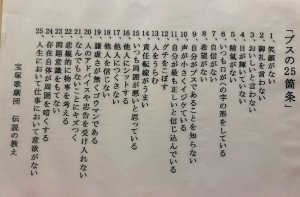 「ブスの25箇条」
1、笑顔がない
2、お礼を言わない
3、おいしいと言わない
4、目が輝いていない
5、精気がない
6、いつも口がへの字の形をしている
7、自信がない
8、希望や信念がない
9、自分がブスであることを知らない
10、声が小さくイジケている
11、自分が最も正しいと信じ込んでいる
12、グチをこぼす
13、人をうらむ
14、責任転嫁がうまい
15、いつも周囲が悪いと思っている
16、他人に嫉妬する
17、他人につくさない
18、他人を信じない
19、謙虚さがなくゴウマンである
20、人のアドバイスや忠告を受け入れない
21、なんでもないことにキズつく
22、悲観的に物事を考える
23、問題意識を持っていない
24、存在自体が周囲を暗くする
25、人生においても仕事においても意欲がない
宝塚歌劇団 伝説の教え